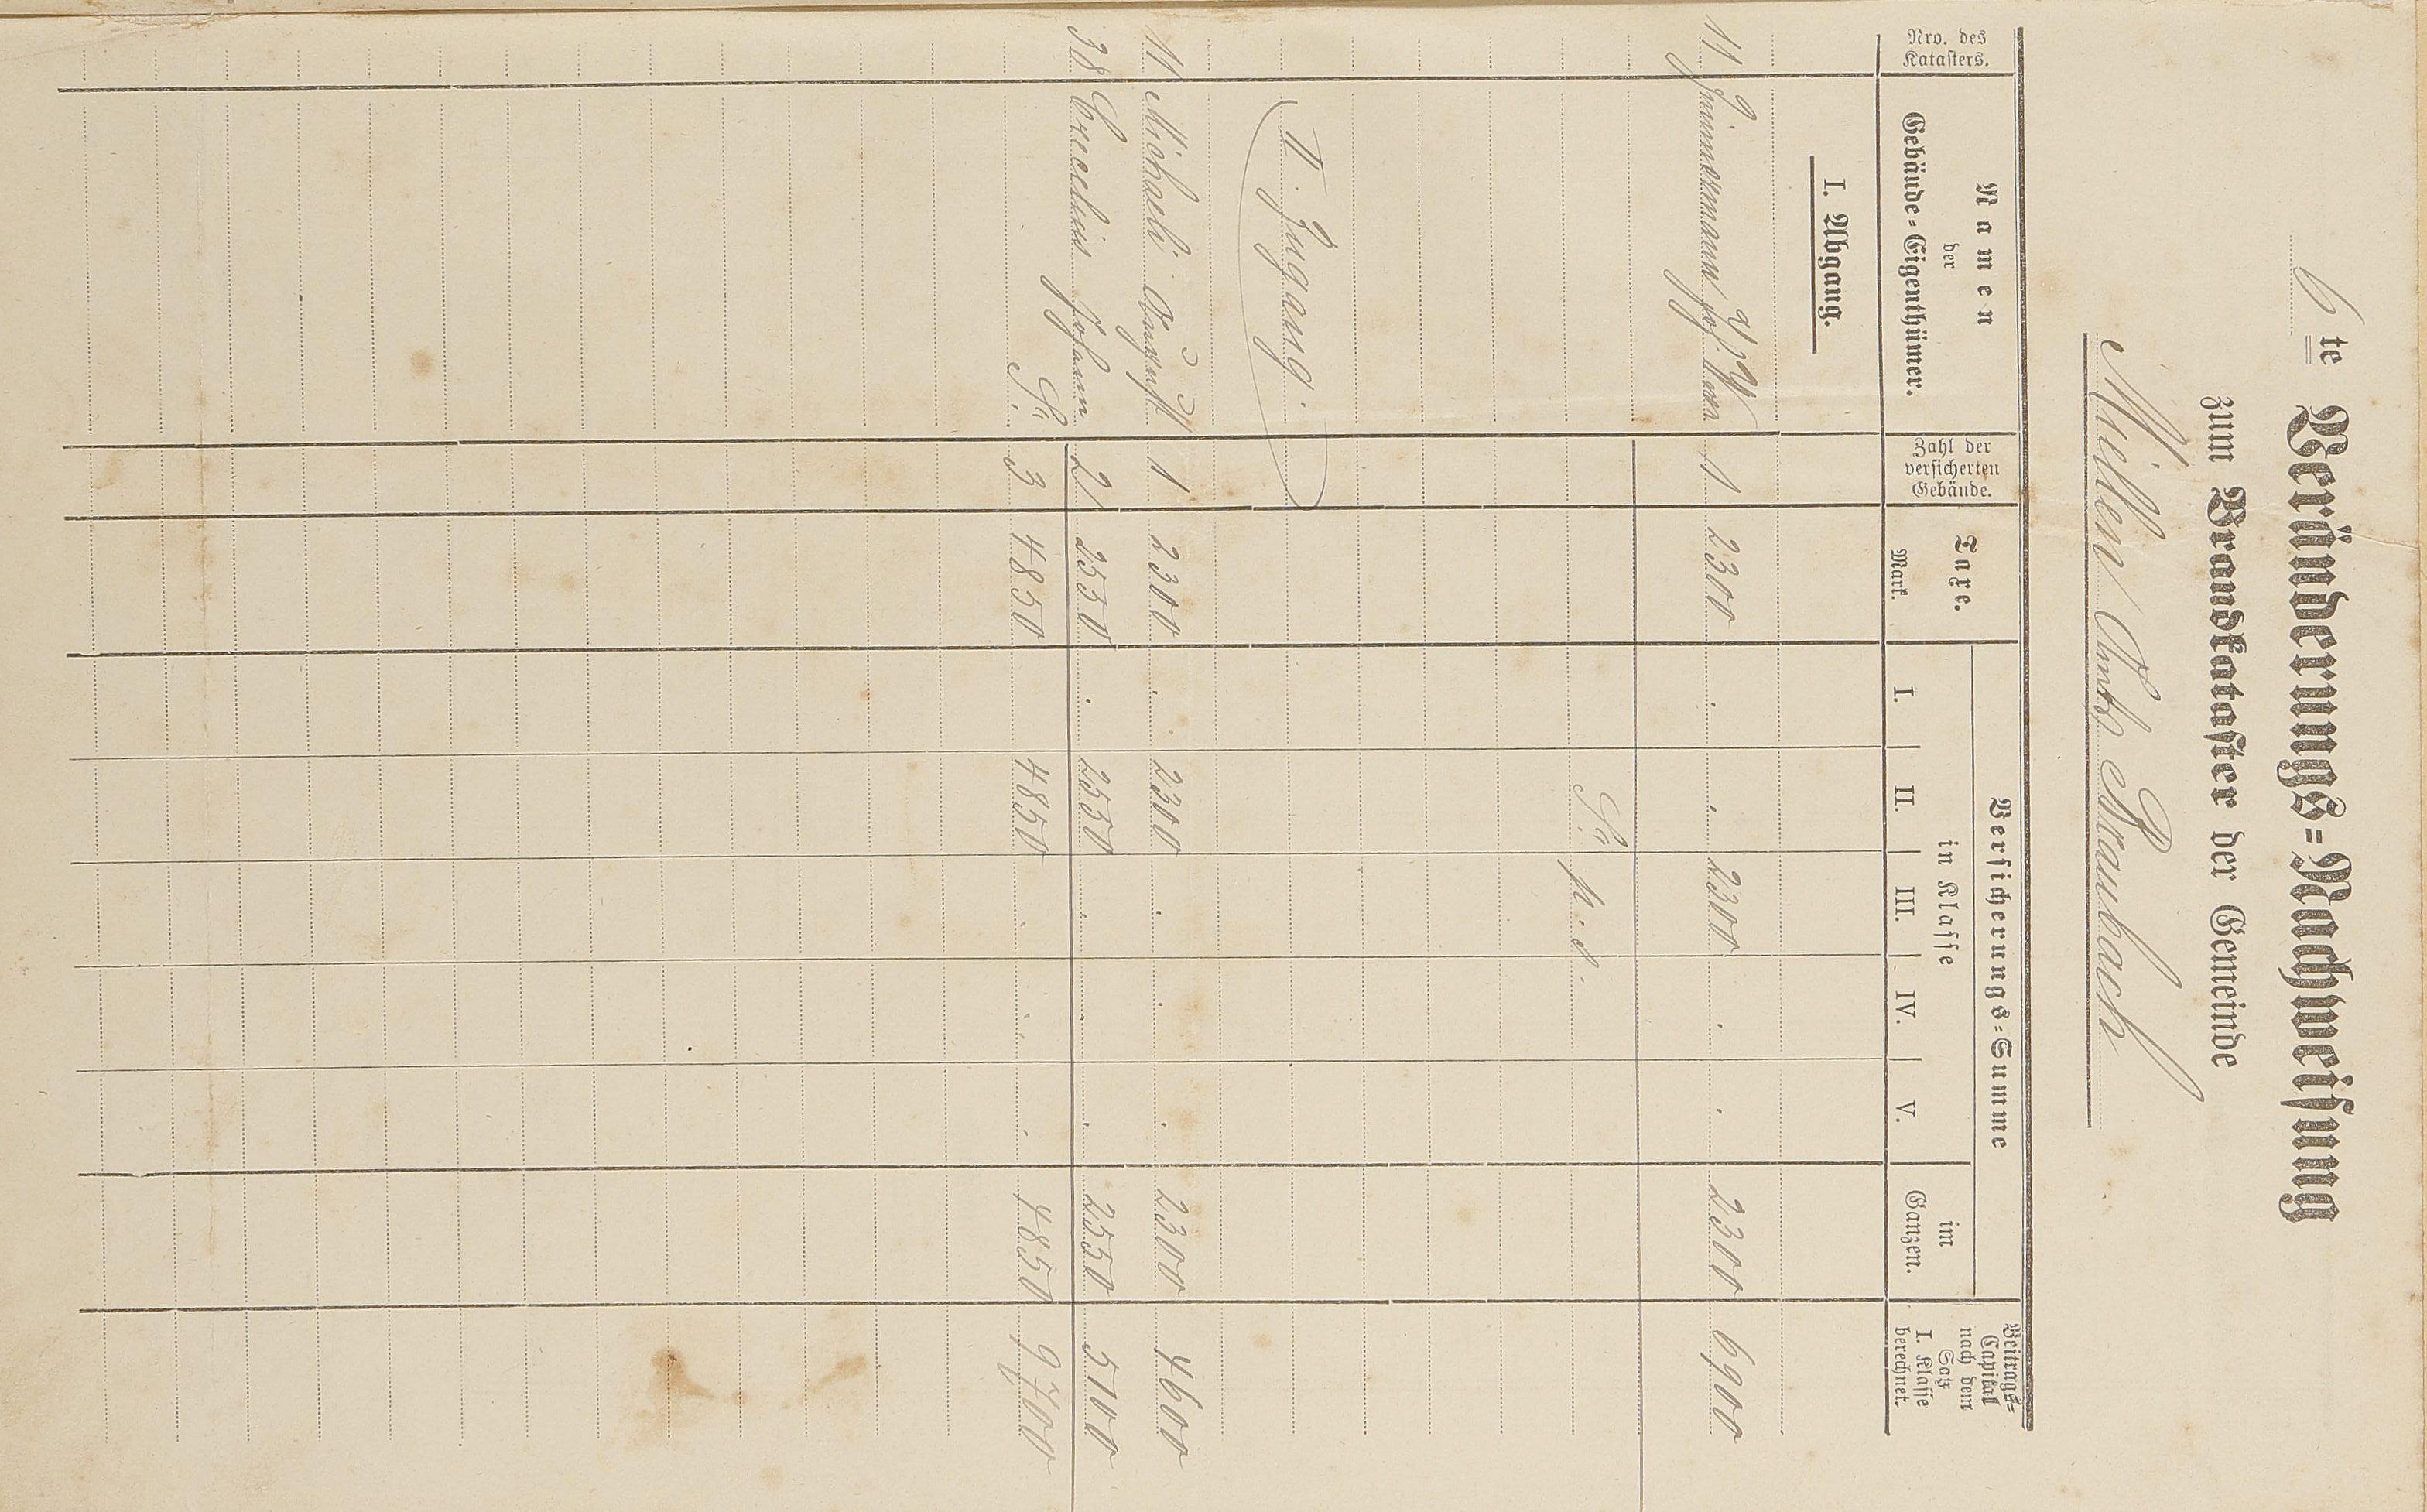 6 te Veränderungs=Nachweisung
zum Brandkataster der Gemeinde
Miellen Amts Braubach
Nro. des Katasters.
Namen der Gebäude=Eigenthümer.
Zahl der versicherten Gebäude.
Taxe. Mark.
Versicherungs=Summe
in Klasse
I. II. III. IV. V.
im Ganzen.
Beitrags=Capital nach dem Satz I. Klasse berechnet.
I. Abgang.
11 Zimmermann Jos. 1 2300 . . 2300 . . 2300 6900
S. p. s.
II. Zugang.
11 Michaeli August 1 2300 . 2300 . . . 2300 4600
38 Crecelius Johann 2 2550 . 2550 . . . 2550 5100
S. 3 4850 4850 . . . 4850 9700